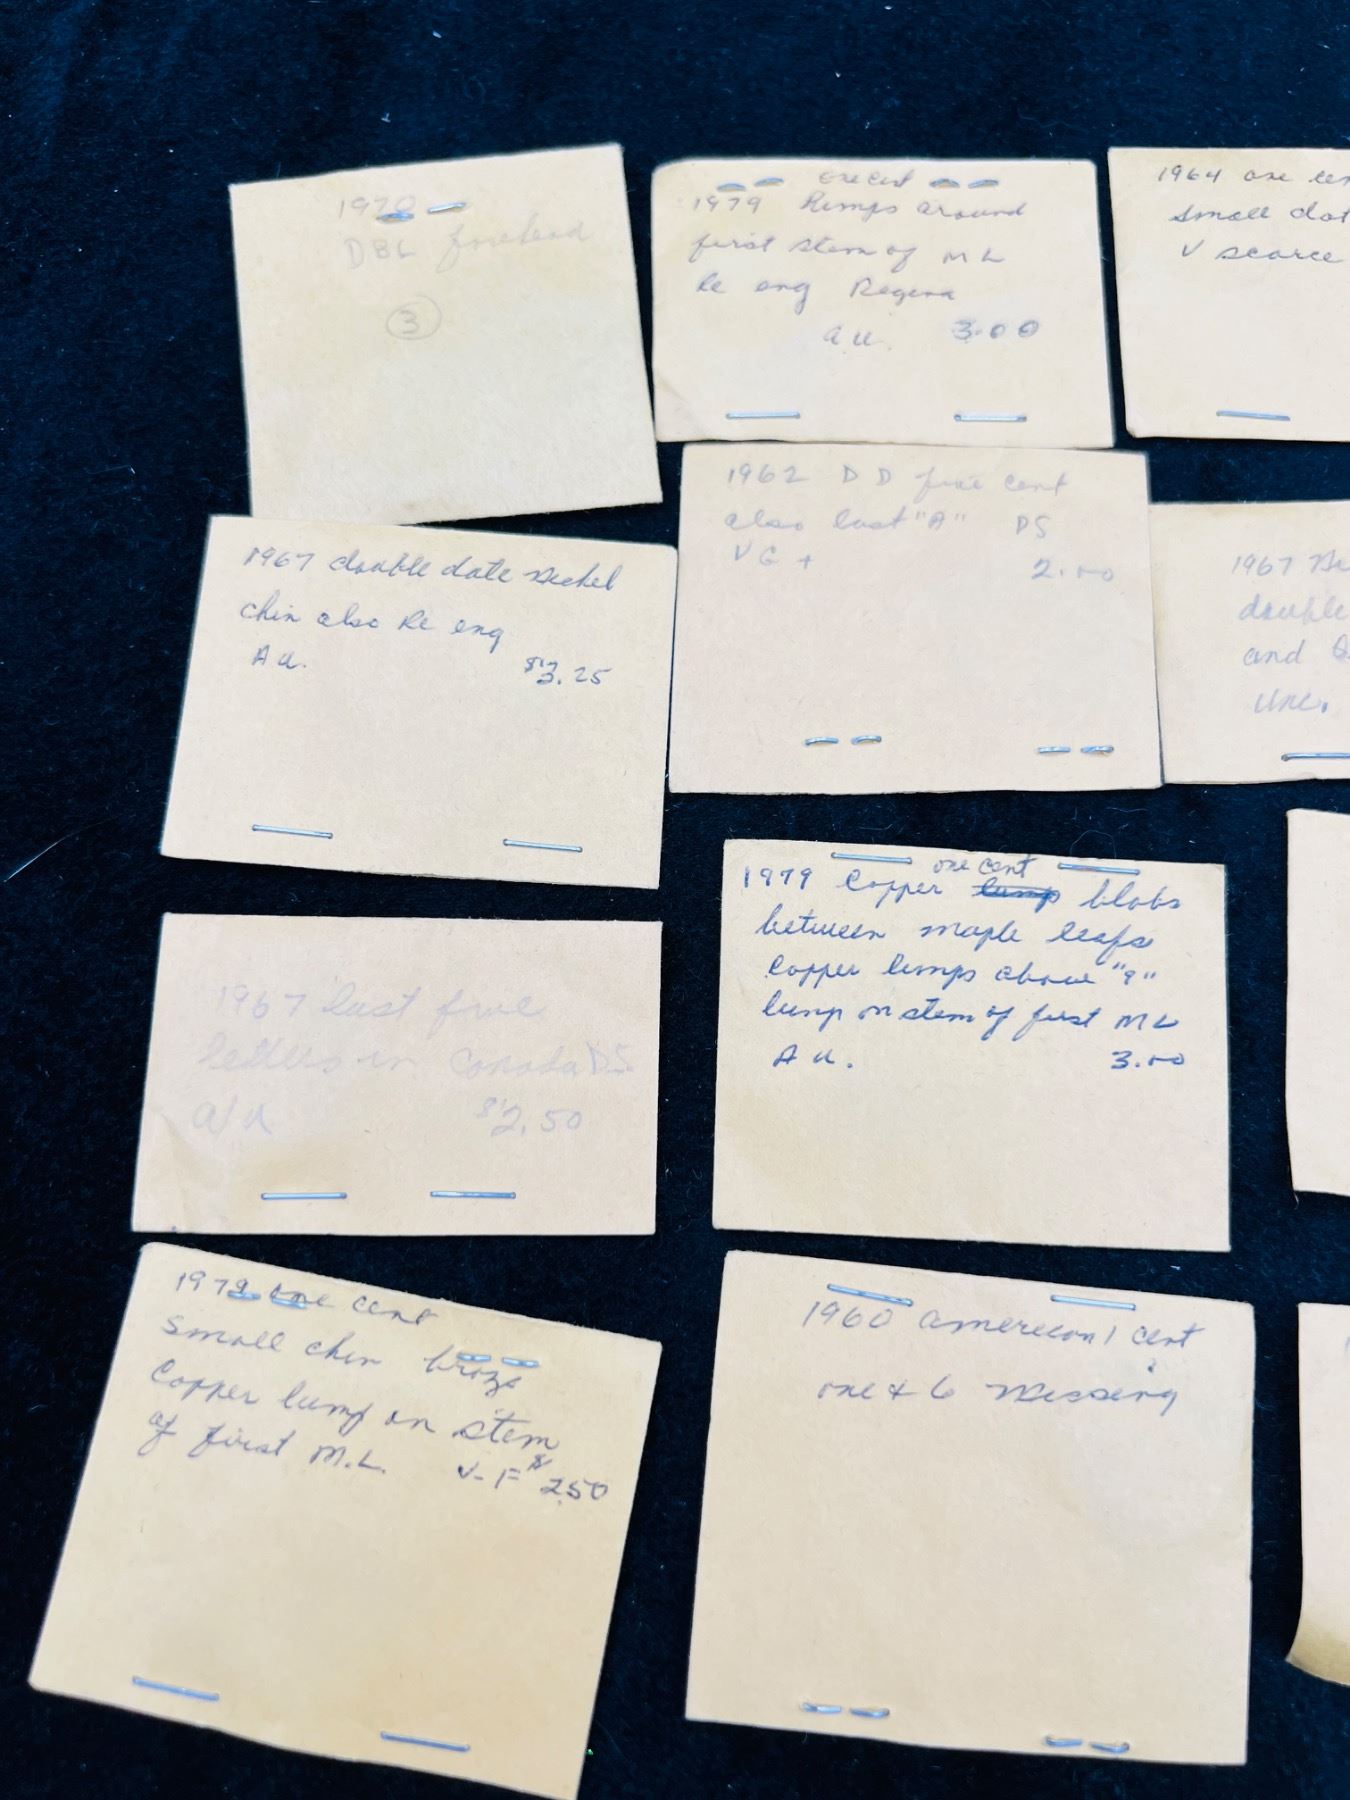 1970
DBL forehead
3
one cent
1979 Rimps around
first stem of M L
Re eng Regina
a u. 3.00
1964 one cen
small dat
V scarce
1967 double date Nickel
chin also Re eng
A u. $3.25
1962 D D five cent
also last "A" DS
V G + 2.00
1967 Ni
double
and
Unc.
1967 last five
letters in Canada D.S.
a/u $2.50
one cent
1979 Copper lump blobs
between maple leafs
Copper lumps above "9"
lump on stem of first M L
A u. 3.00
1979 one cent
small chin broze
Copper lump on stem
of first M.L. V-F $2.50
1960 american 1 cent
one & 6 Missing